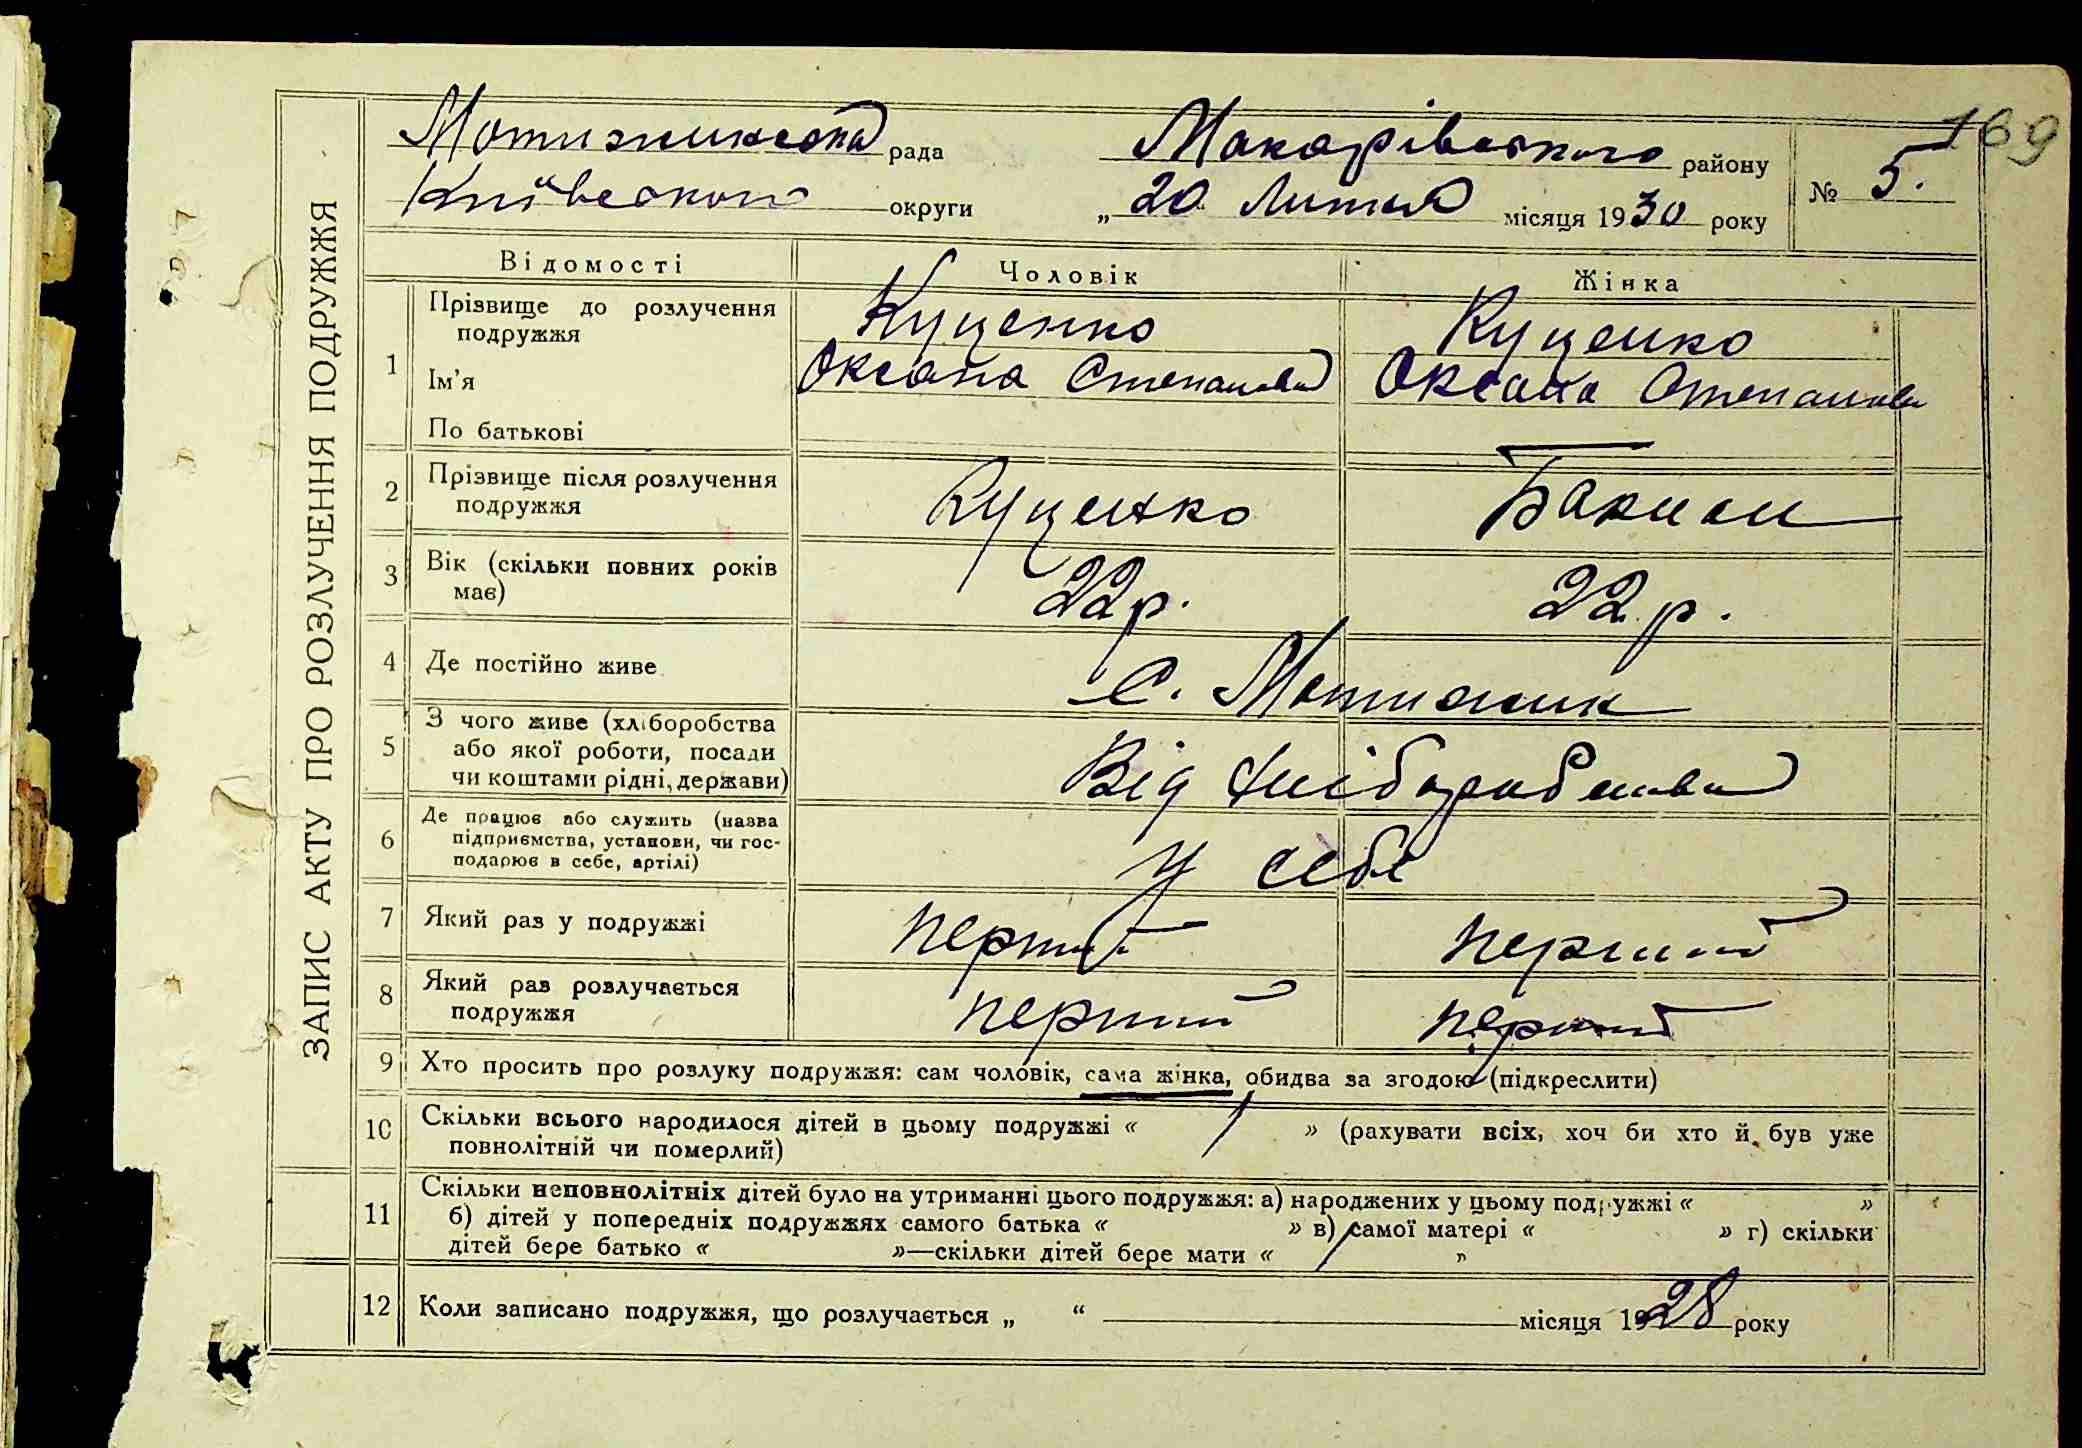 169
ЗАПИС АКТУ ПРО РОЗЛУЧЕННЯ ПОДРУЖЖЯ
Мотижинська рада Макарівського району
Київської округи „ 20 Лютого місяця 1930 року № 5.
Відомості Чоловік Жінка
1 Прізвище до розлучення подружжя Куценко Куценко
Ім'я Оксана Степанова Оксана Степанова
По батькові
2 Прізвище після розлучення подружжя Куценко
3 Вік (скільки повних років має) 22 р. 22 р.
4 Де постійно живе с. Мотижин
5 З чого живе (хліборобства або якої роботи, посади чи коштами рідні, держави) Від хліборобства
6 Де працює або служить (назва підприємства, установи, чи господарює в себе, артілі) У себе
7 Який раз у подружжі перший перший
8 Який раз розлучається подружжя перший перший
9 Хто просить про розлуку подружжя: сам чоловік, сама жінка, обидва за згодою (підкреслити)
10 Скільки всього народилося дітей в цьому подружжі « » (рахувати всіх, хоч би хто й був уже
повнолітній чи померлий)
11 Скільки неповнолітніх дітей було на утриманні цього подружжя: а) народжених у цьому подружжі « »
б) дітей у попередніх подружжях самого батька « » в) самої матері « » г) скільки
дітей бере батько « »—скільки дітей бере мати « „
12 Коли записано подружжя, що розлучається „ “ місяця 1928 року